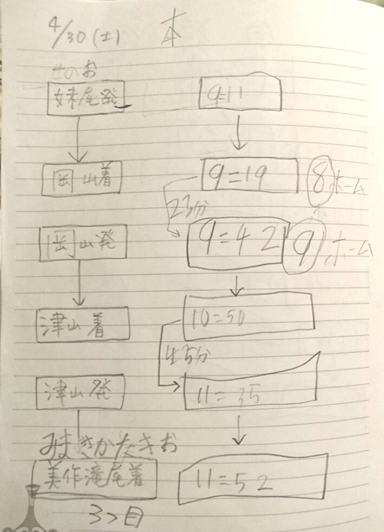 4/30(土) 本
せのお
妹尾発 9=11
岡山着 9=19 8ホーム
23分
岡山発 9=42 9ホーム
津山着 10=50
45分
津山発 11=35
みまさかたきお
美作滝尾着 11=52
3つ目